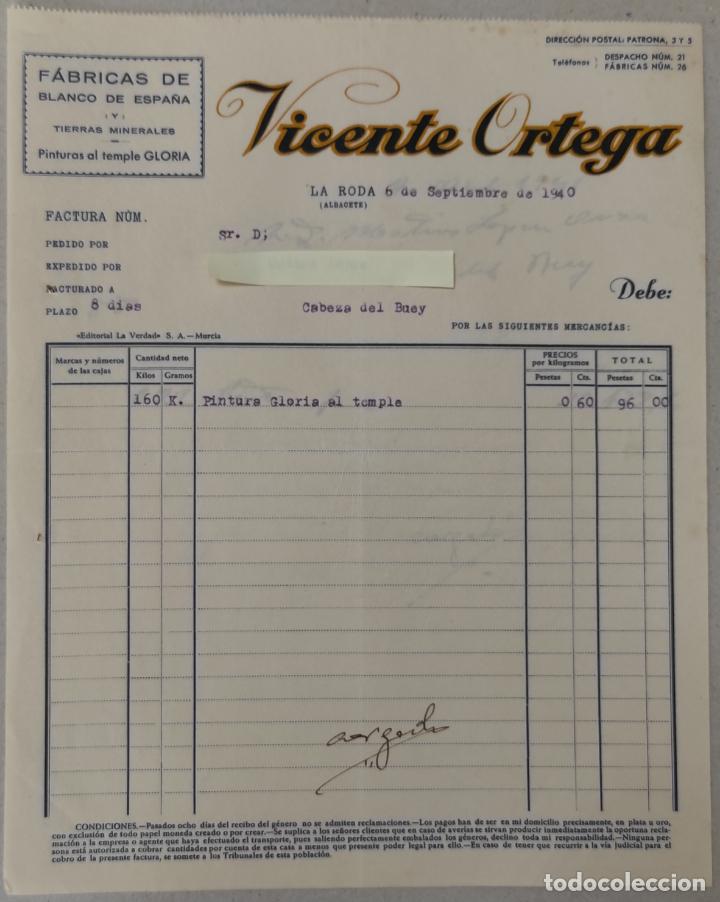 DIRECCIÓN POSTAL: PATRONA, 3 Y 5
Teléfonos: DESPACHO NÚM. 21
FÁBRICAS NÚM. 26
FÁBRICAS DE
BLANCO DE ESPAÑA
(Y)
TIERRAS MINERALES
Pinturas al temple GLORIA
Vicente Ortega
LA RODA 6 de Septiembre de 1940
(ALBACETE)
FACTURA NÚM.
Sr. D;
PEDIDO POR
EXPEDIDO POR
FACTURADO A
Debe:
PLAZO 8 dias
Cabeza del Buey
POR LAS SIGUIENTES MERCANCÍAS:
«Editorial La Verdad» S. A.—Murcia
Marcas y números de las cajas
Cantidad neto
Kilos Gramos
PRECIOS por kilogramos
Pesetas Cts.
TOTAL
Pesetas Cts.
160 K. Pintura Gloria al temple 0 60 96 00
CONDICIONES.—Pasados ocho días del recibo del género no se admiten reclamaciones.—Los pagos han de ser en mi domicilio precisamente, en plata u oro,
con exclusión de todo papel moneda creado o por crear.—Se suplica a los señores clientes que en caso de averías se sirvan producir inmediatamente la oportuna recla-
mación a la empresa o agente que haya efectuado el transporte, pues saliendo perfectamente embalados los géneros, declino toda mi responsabilidad.—Ninguna per-
sona está autorizada a cobrar cantidades por cuenta de esta casa a menos que presente poder legal para ello.—En caso de tener que recurrir a la vía judicial para el
cobro de la presente factura, se somete a los Tribunales de esta población.
todocoleccion